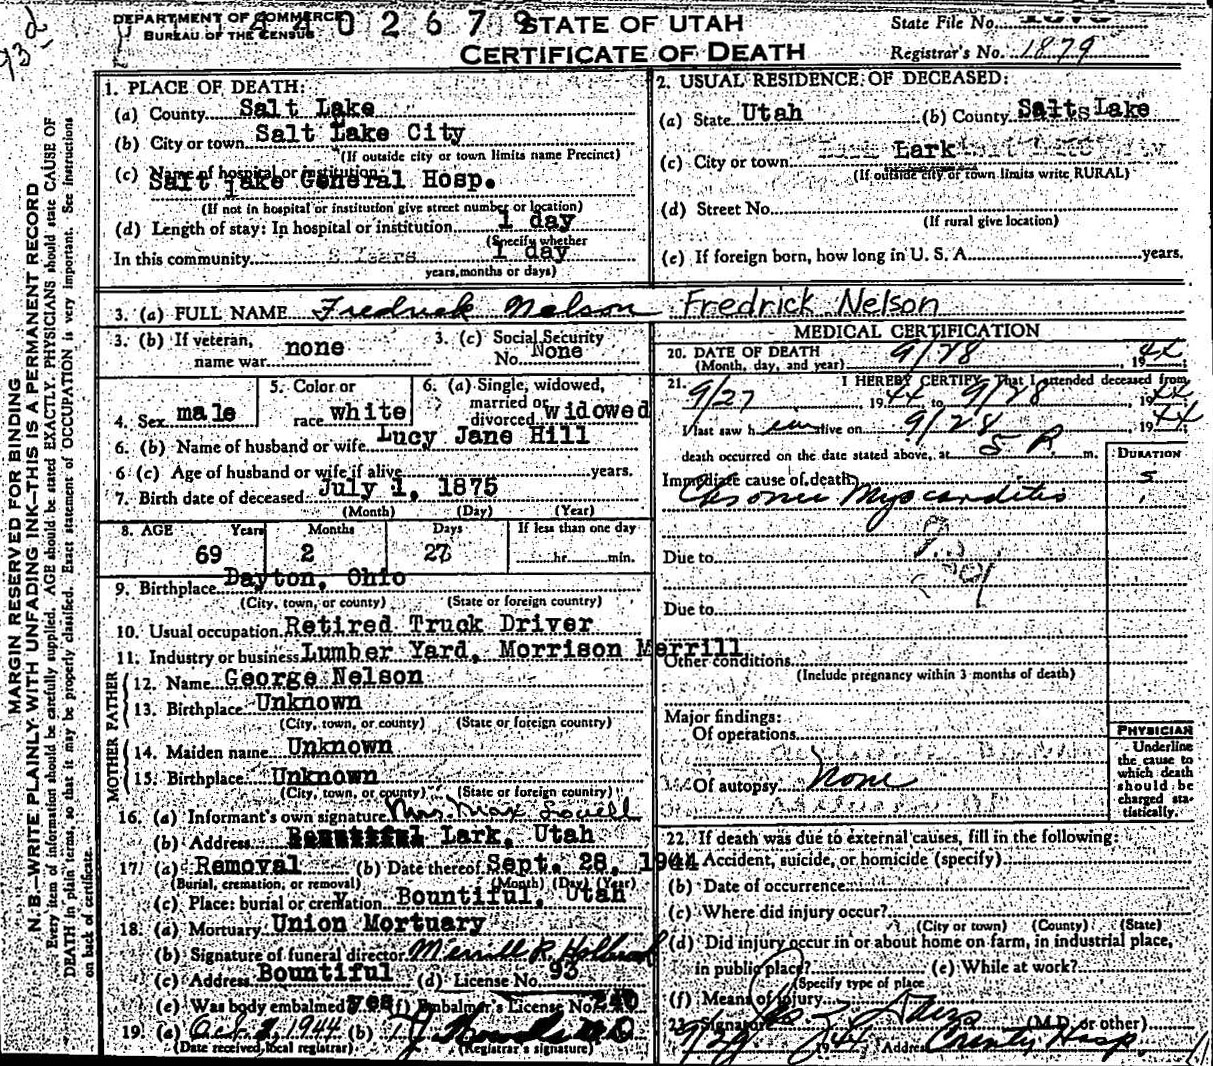 DEPARTMENT OF COMMERCE
BUREAU OF THE CENSUS
0 2 6 7 9
STATE OF UTAH
CERTIFICATE OF DEATH
State File No.
Registrar's No. 1879
93-d
MARGIN RESERVED FOR BINDING
N. B.—WRITE PLAINLY WITH UNFADING INK—THIS IS A PERMANENT RECORD
Every item of information should be carefully supplied. AGE should be stated EXACTLY. PHYSICIANS should state CAUSE OF
DEATH in plain terms, so that it may be properly classified. Exact statement of OCCUPATION is very important. See instructions
on back of certificate.
1. PLACE OF DEATH:
(a) County Salt Lake
(b) City or town Salt Lake City
(If outside city or town limits name Precinct)
(c) Name of hospital or institution
Salt Lake General Hosp.
(If not in hospital or institution give street number or location)
(d) Length of stay: In hospital or institution 1 day
(Specify whether
In this community 1 day
years, months or days)
2. USUAL RESIDENCE OF DECEASED:
(a) State Utah (b) County Salt Lake
(c) City or town Lark
(If outside city or town limits write RURAL)
(d) Street No.
(If rural give location)
(e) If foreign born, how long in U. S. A. years.
3. (a) FULL NAME Fredrick Nelson Fredrick Nelson
3. (b) If veteran, name war none
3. (c) Social Security No. None
4. Sex male
5. Color or race white
6. (a) Single, widowed, married or divorced widowed
6. (b) Name of husband or wife Lucy Jane Hill
6 (c) Age of husband or wife if alive years.
7. Birth date of deceased July 1, 1875
(Month) (Day) (Year)
8. AGE Years Months Days If less than one day
69 2 27 hr. min.
9. Birthplace Dayton, Ohio
(City, town, or county) (State or foreign country)
10. Usual occupation Retired Truck Driver
11. Industry or business Lumber Yard, Morrison Merrill
FATHER
12. Name George Nelson
13. Birthplace Unknown
(City, town, or county) (State or foreign country)
MOTHER
14. Maiden name Unknown
15. Birthplace Unknown
(City, town, or county) (State or foreign country)
16. (a) Informant's own signature Mrs. Max Lovell
(b) Address Bountiful Lark, Utah
17. (a) Removal (b) Date thereof Sept. 28, 1944
(Burial, cremation, or removal) (Month) (Day) (Year)
(c) Place: burial or cremation Bountiful, Utah
18. (a) Mortuary Union Mortuary
(b) Signature of funeral director Merrill R. Holbrook
(c) Address Bountiful (d) License No. 93
(e) Was body embalmed yes (f) Embalmer's License No. 240
19. (a) Oct. 2, 1944 (b)
(Date received local registrar) (Registrar's signature)
MEDICAL CERTIFICATION
20. DATE OF DEATH 9/28, 1944
(Month, day, and year)
21. I HEREBY CERTIFY, That I attended deceased from
9/27, 1944 to 9/28, 1944
I last saw him alive on 9/28, 1944
death occurred on the date stated above, at 5 P. m.
DURATION
Immediate cause of death
Chronic Myocarditis
5
Due to
Due to
Other conditions
(Include pregnancy within 3 months of death)
Major findings:
Of operations
Of autopsy None
PHYSICIAN
Underline
the cause to
which death
should be
charged sta-
tistically.
22. If death was due to external causes, fill in the following:
(a) Accident, suicide, or homicide (specify)
(b) Date of occurrence
(c) Where did injury occur?
(City or town) (County) (State)
(d) Did injury occur in or about home on farm, in industrial place,
in public place? (e) While at work?
(Specify type of place
(f) Means of injury
23. Signature (M.D. or other)
9/29 1944 Address County Hosp.